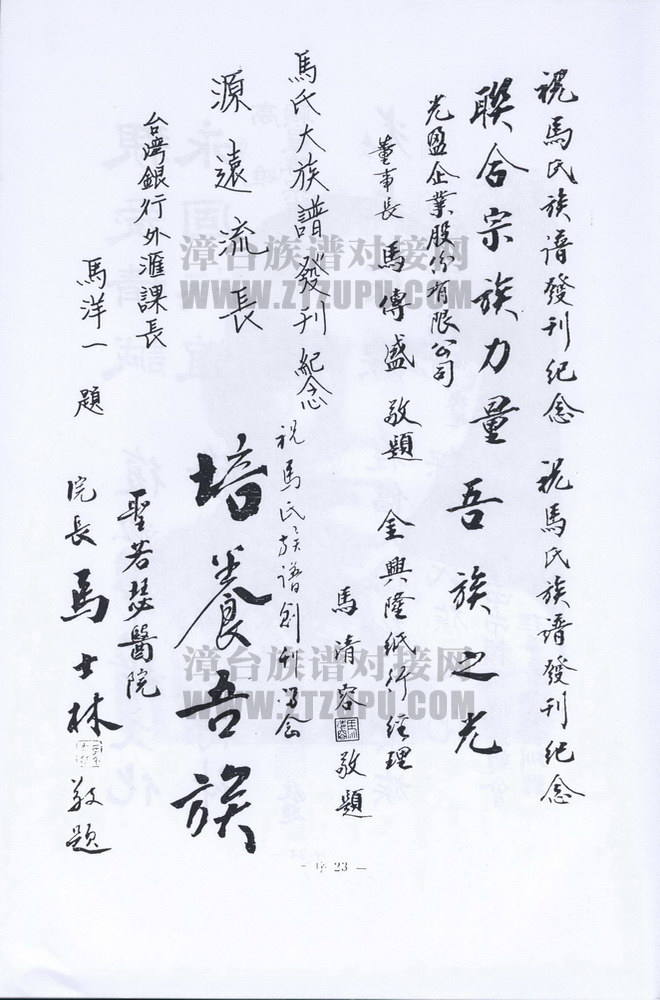 祝馬氏族譜發刊紀念
聯合宗族力量
光盈企業股份有限公司
董事長 馬傳盛 敬題
祝馬氏族譜發刊紀念
吾族之光
金興隆紙行經理
馬清容 敬題
馬氏大族譜發刊紀念
源遠流長
台灣銀行外滙課長
馬洋一 題
祝馬氏族譜創刊紀念
培養吾族
聖若瑟醫院
院長 馬士林 敬題
- 序 23 -
漳台族谱对接网
WWW.ZTZUPU.COM
漳台族谱对接网
WWW.ZTZUPU.COM